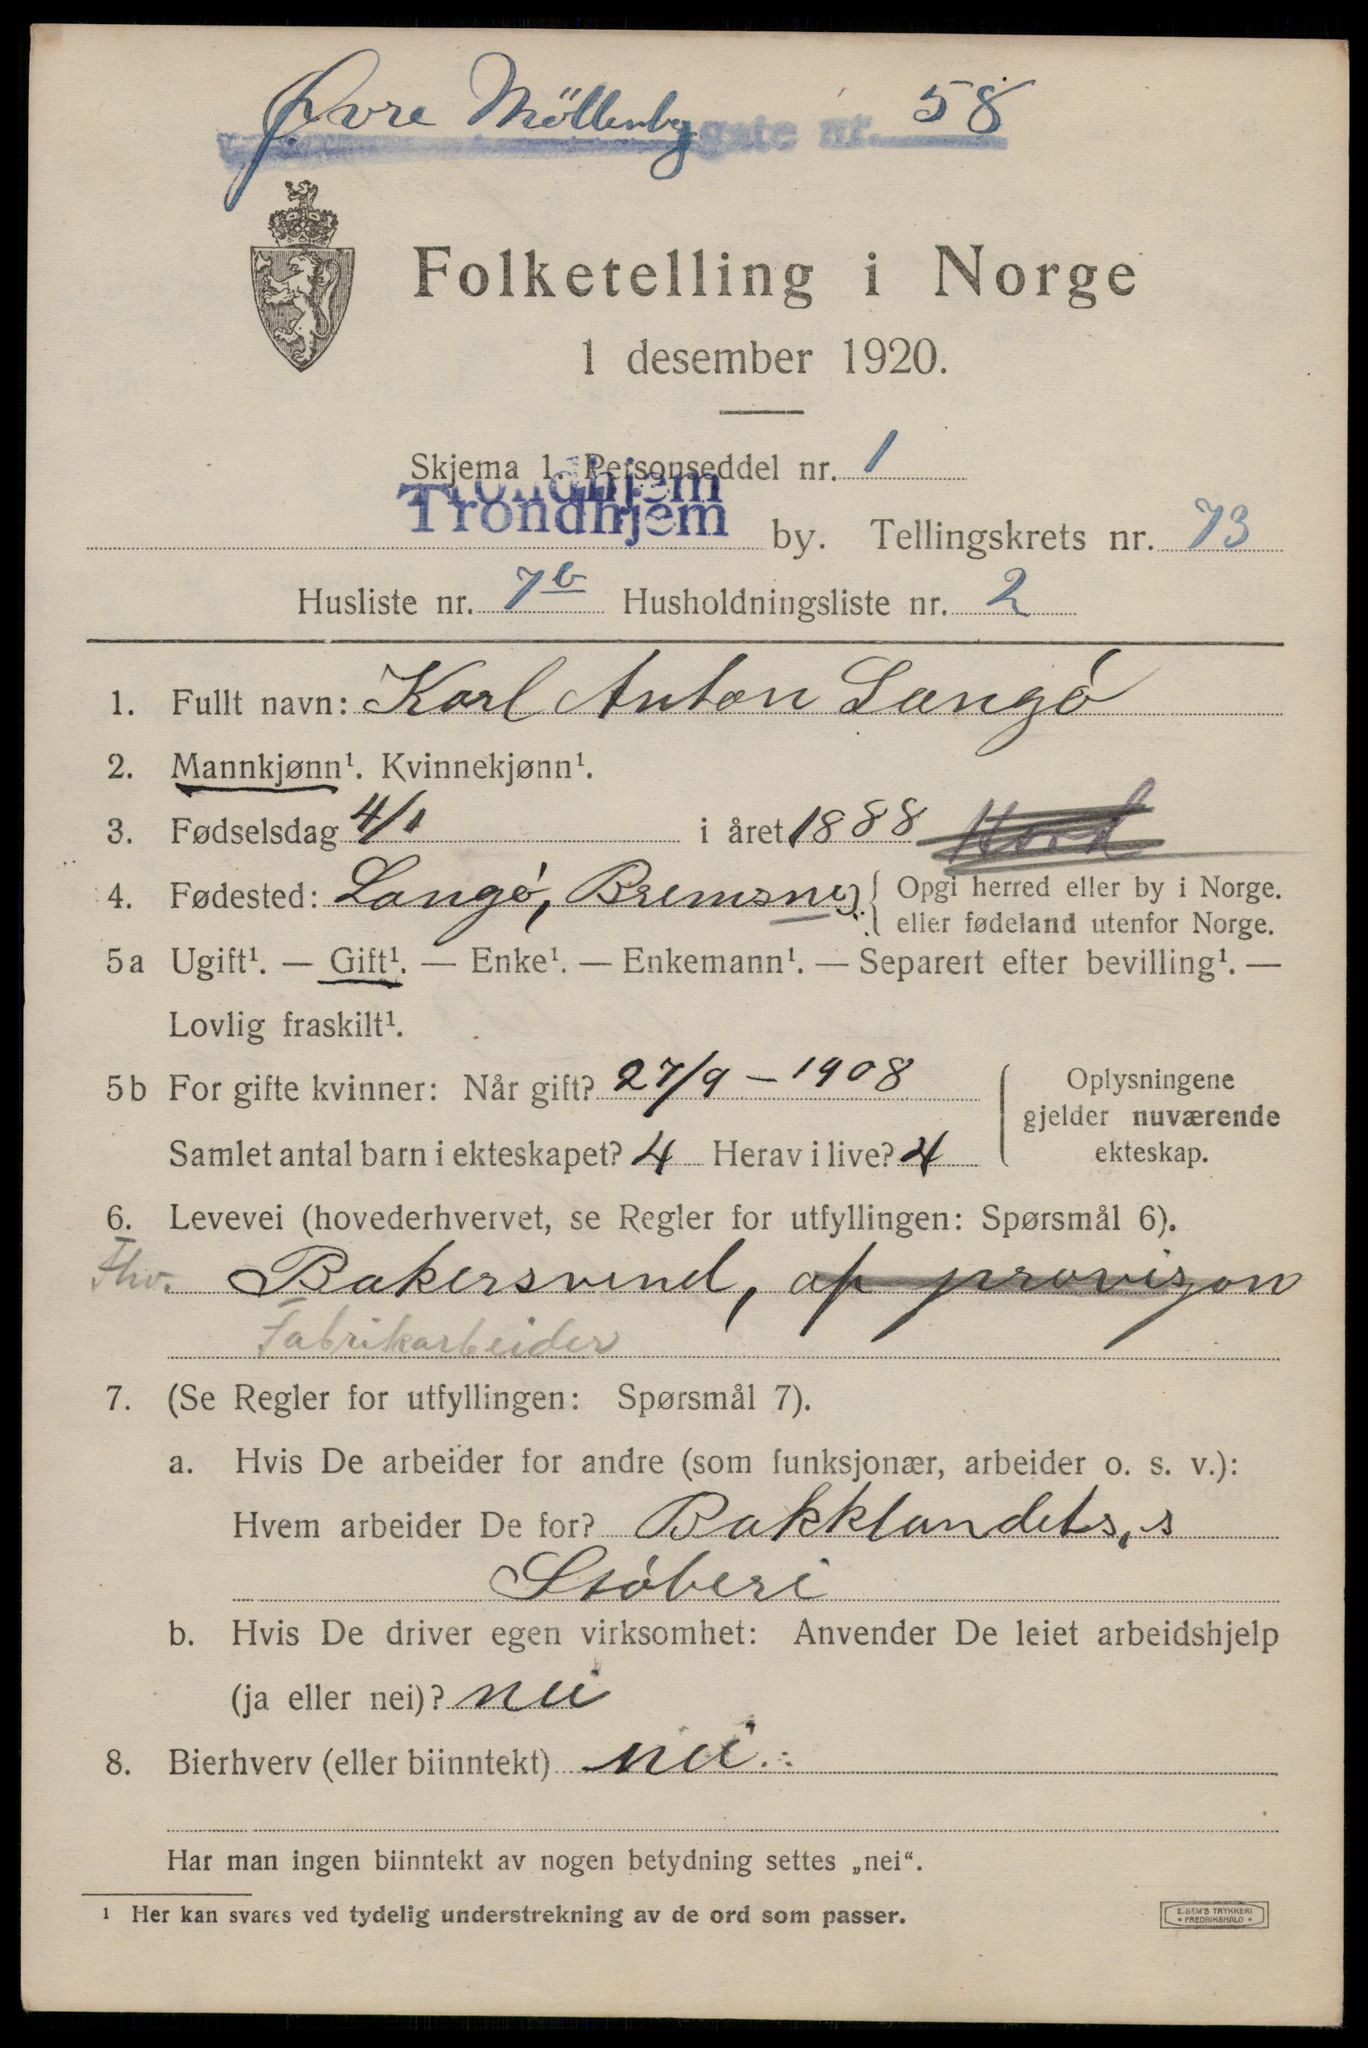 Øvre Möllenbg gate nr. 58
Folketelling i Norge
1 desember 1920.
Skjema 1. Personseddel nr. 1
Trondhjem
Trondhjem by. Tellingskrets nr. 73
Husliste nr. 7b Husholdningsliste nr. 2
1. Fullt navn: Karl Anton Langó
2. Mannkjønn¹. Kvinnekjønn¹.
3. Fødselsdag 4/1 i året 1888
4. Fødested: Langó, Bremsnes { Opgi herred eller by i Norge.
eller fødeland utenfor Norge.
5a Ugift¹. — Gift¹. — Enke¹. — Enkemann¹. — Separert efter bevilling¹. —
Lovlig fraskilt¹.
5b For gifte kvinner: Når gift? 27/9 – 1908
Samlet antal barn i ekteskapet? 4 Herav i live? 4
Oplysningene
gjelder nuværende
ekteskap.
6. Levevei (hovederhvervet, se Regler for utfyllingen: Spørsmål 6).
Fhv. Bakersvend, ap provizon
Fabrikarbeider
7. (Se Regler for utfyllingen: Spørsmål 7).
a. Hvis De arbeider for andre (som funksjonær, arbeider o. s. v.):
Hvem arbeider De for? Bakklandets, s
Stóberi
b. Hvis De driver egen virksomhet: Anvender De leiet arbeidshjelp
(ja eller nei)? nei
8. Bierhverv (eller biinntekt) nei.
Har man ingen biinntekt av nogen betydning settes „nei“.
¹ Her kan svares ved tydelig understrekning av de ord som passer.
E. SEM'S TRYKKERI
* FREDRIKSHALD *